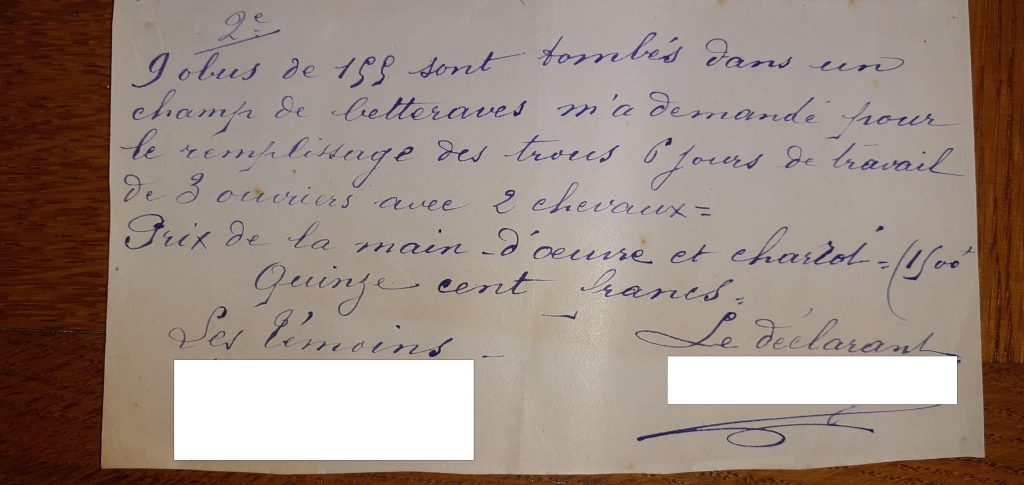 2e
9 obus de 155 sont tombés dans un
champ de betteraves m'a demandé pour
le remplissage des trous 6 jours de travail
de 3 ouvriers avec 2 chevaux =
Prix de la main-d'œuvre et chariot = (1500f
Quinze cent francs =
Les témoins - Le déclarant